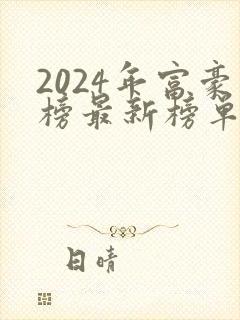 2024年富豪
榜最新榜单
日晴